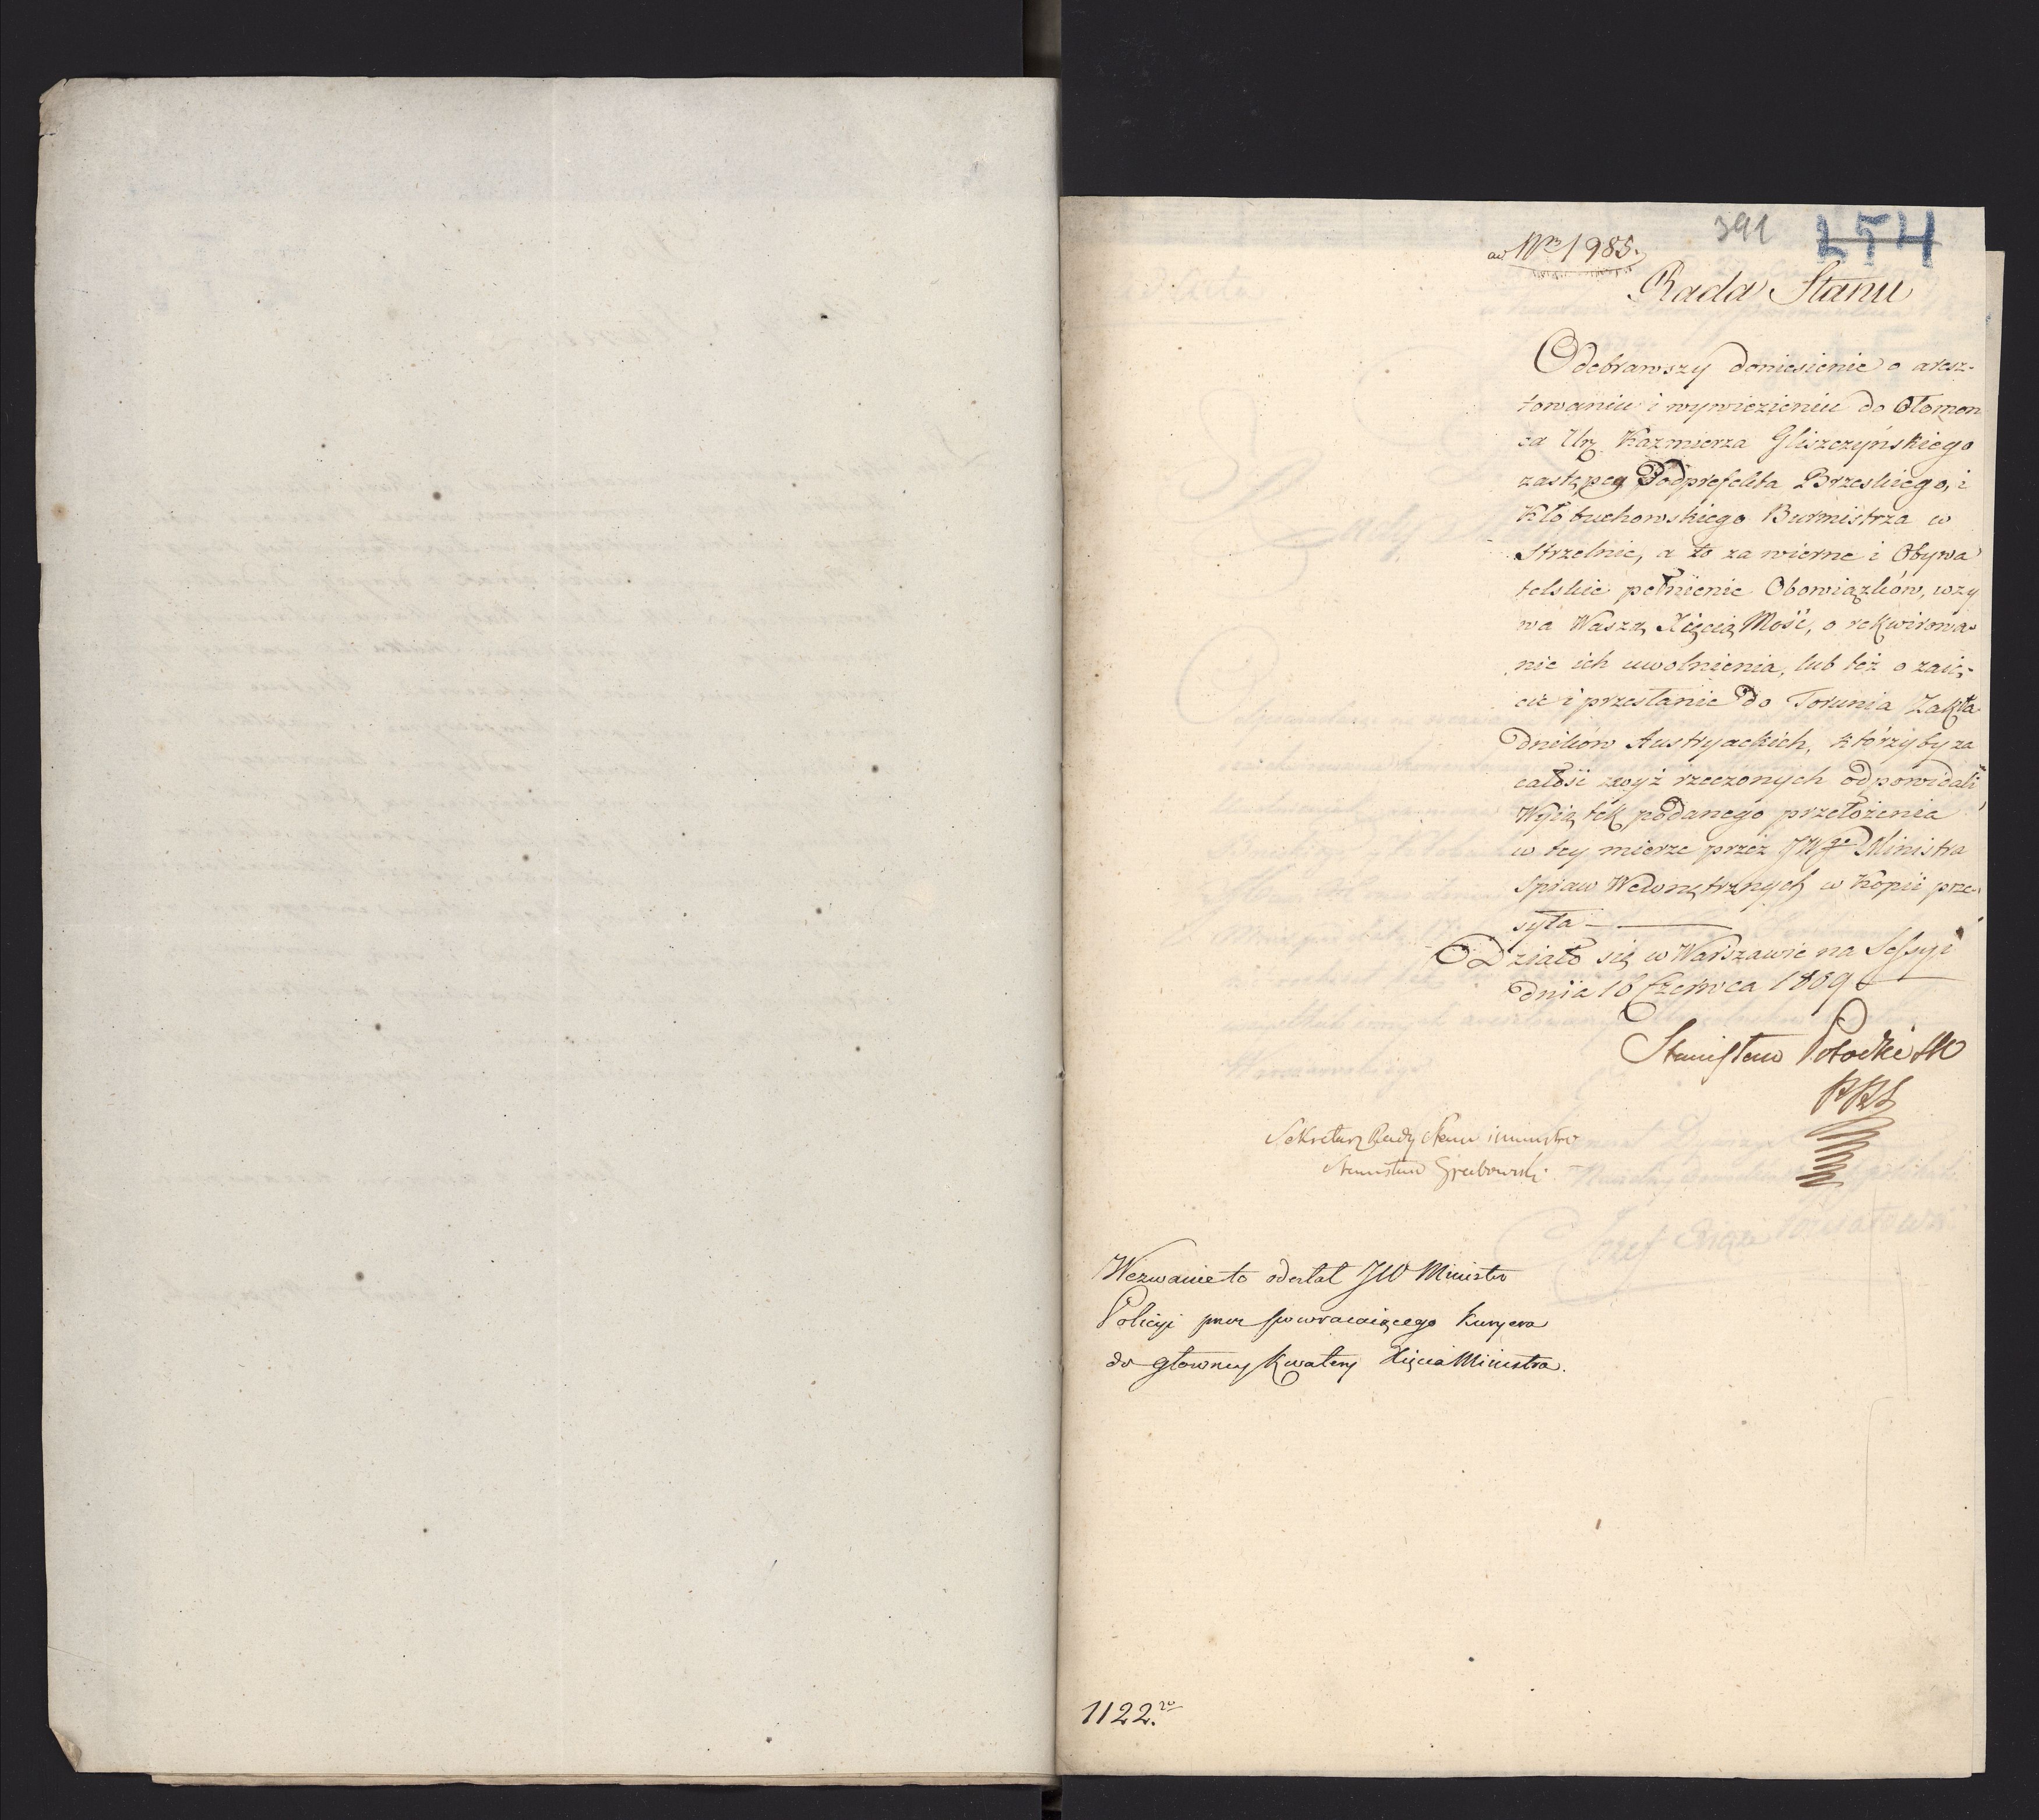 391 254
ad Nro 1985.
Rada Stanu
Odebrawszy doniesienie o aresz-
towaniu i wywiezieniu do Ołomoń
ca Urz. Kazmierza Gliszczyńskiego
zastępcy Podprefekta Brzeskiego, i
Kłobuchowskiego Burmistrza w
Strzelnie, a to za wierne i Obywa
telskie pełnienie Obowiązków, wzy
wa Waszą Xięcią Mość, o rekwirowa-
nie ich uwolnienia, lub też o zaię-
cie i przesłanie do Torunia Zakła
dników Austryackich, którzyby za
całość zwyż rzeczonych odpowidali
Wyiątek podanego przełożenia
w tey mierze przez JWgo Ministra
Spraw Wewnętrznych w Kopii prze-
syła
Działo się w Warszawie na Sessyi
dnia 16 Czerwca 1809
Stanisław Potocki
PRS
Sekretarz Rady Stanu i ministrów
Stanisław Grabowski
Wezwanie to odesłał JW Minister
Policyi przez powracaiącego Kuryera
do głowney Kwatery Xięcia Ministra.
1122.